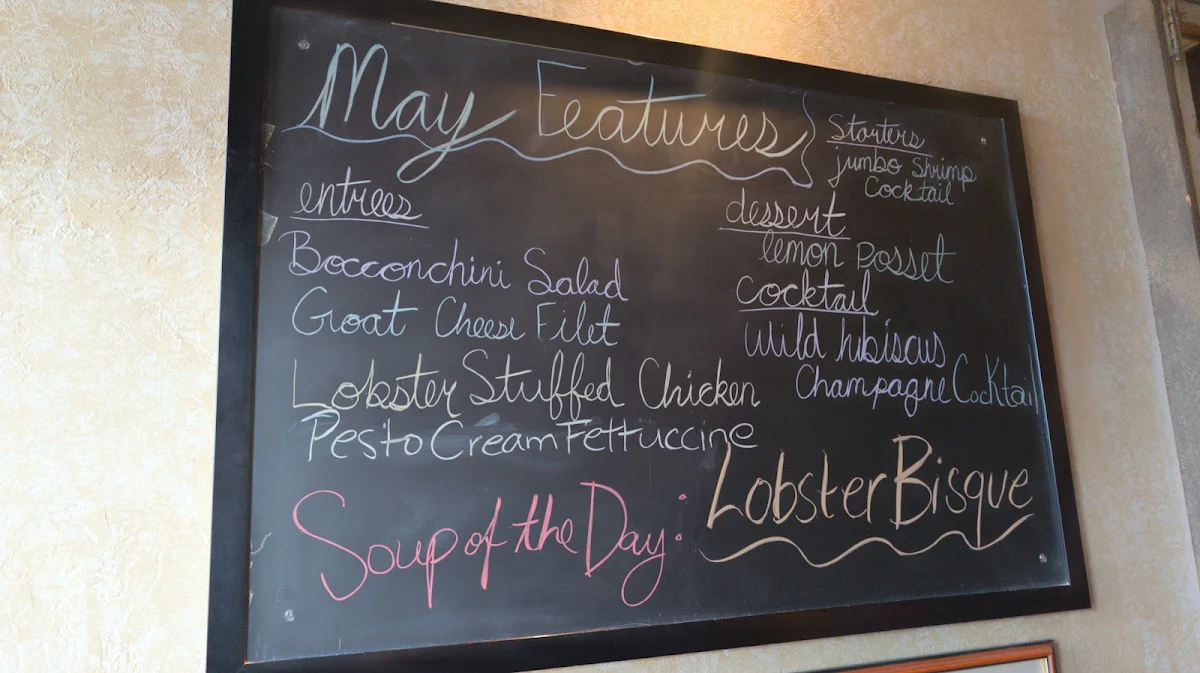 May Features
Starters
jumbo Shrimp
Cocktail
entrees
Bocconchini Salad
Goat Cheese Filet
Lobster Stuffed Chicken
Pesto Cream Fettuccine
dessert
lemon posset
Cocktail
Wild hibiscus
Champagne Cocktail
Soup of the Day:
Lobster Bisque